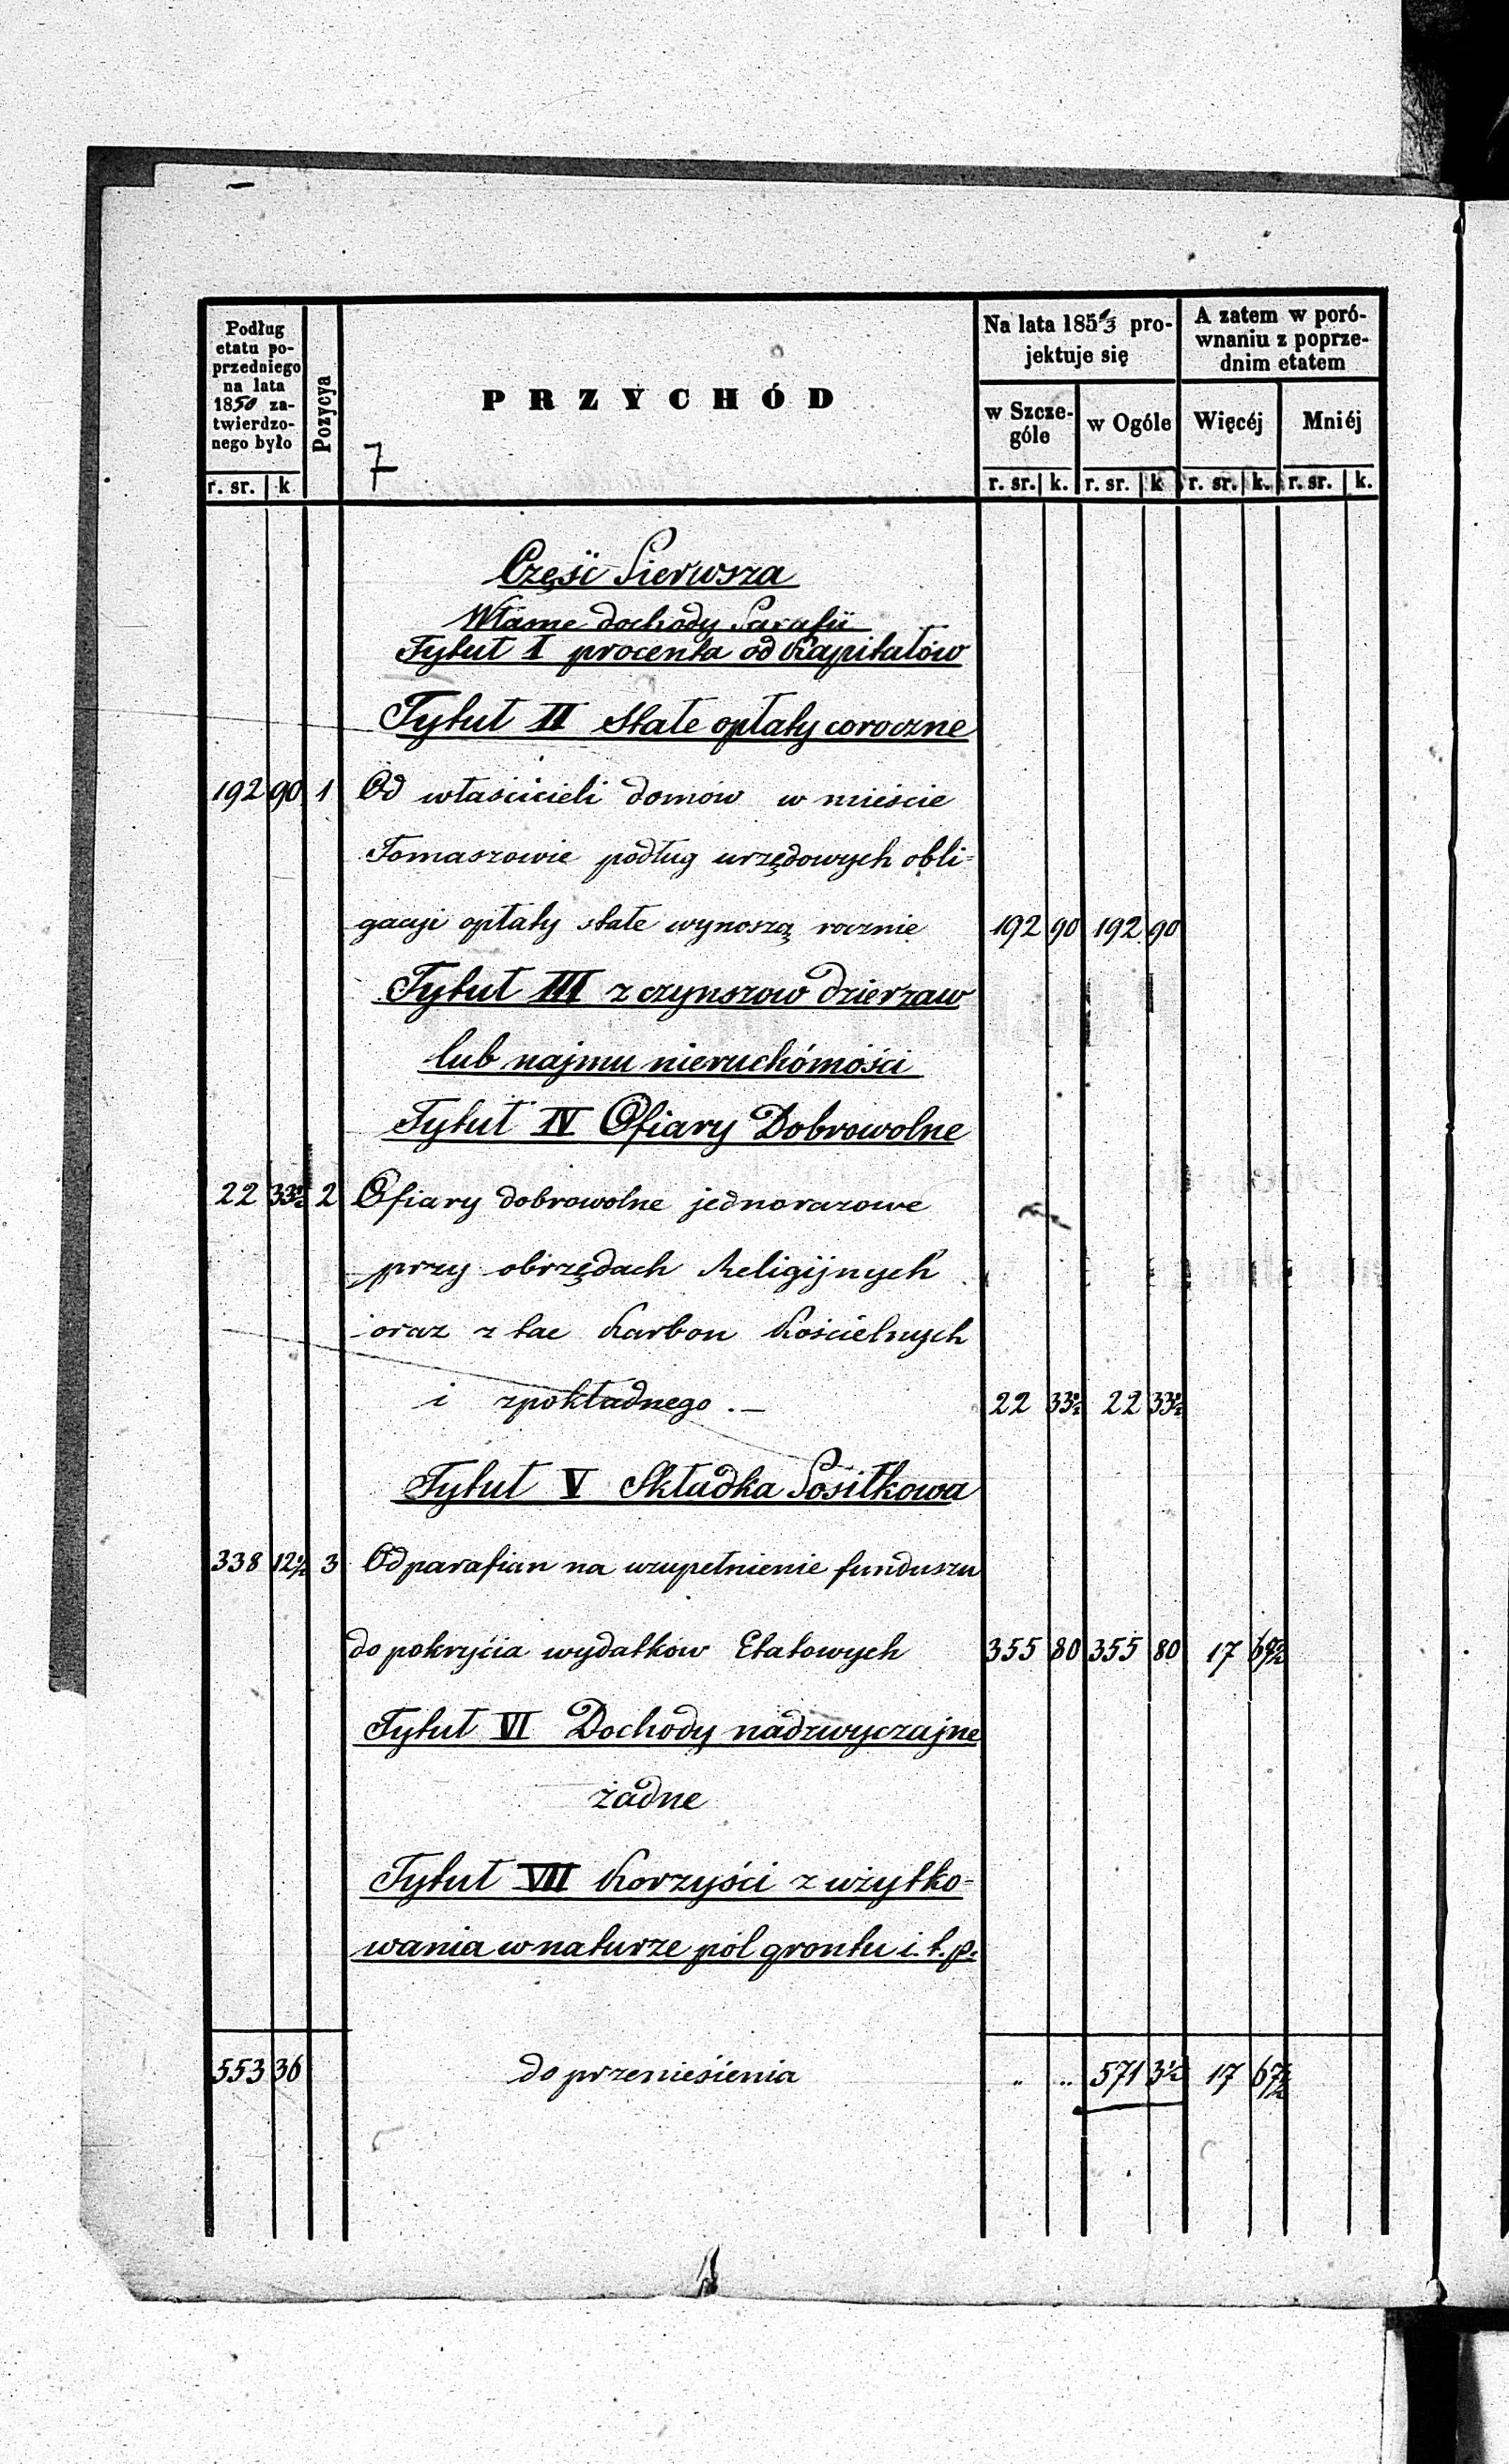 Podług
etatu po-
przedniego
na lata
1850 za-
twierdzo-
nego było
Pozycya
PRZYCHÓD
7
Na lata 185 1/3 pro-
jektuje się
A zatem w poró-
wnaniu z poprze-
dnim etatem
w Szcze-
góle
w Ogóle
Więcéj
Mniéj
r. sr. k r. sr. k. r. sr. k r. sr. k. r. sr. k.
Część Pierwsza
Własne dochody Parafii
Tytuł I procenta od Kapitałów
Tytuł II Stałe opłaty coroczne
192 90 1 Od właścicieli domów w mieście
Tomaszowie podług urzędowych obli=
gacyi opłaty stałe wynoszą rocznie 192 90 192 90
Tytuł III z czynszow dzierzaw
lub najmu nieruchómości
Tytuł IV Ofiary Dobrowolne
22 33½ 2 Ofiary dobrowolne jednorazowe
przy obrzędach Religijnych
oraz z tac Karbon Kościelnych
i zpokładnego . — 22 33½ 22 33½
Tytuł V Składka Posiłkowa
338 12½ 3 Od parafian na uzupełnienie funduszu
do pokrycia wydatków Etatowych 355 80 355 80 17 67½
Tytuł VI Dochody nadzwyczajne
żadne
Tytuł VII Korzyści z użytko=
wania w naturze pól gruntu i. t. p.
553 36 do przeniesienia .. .. 571 3½ 17 67½